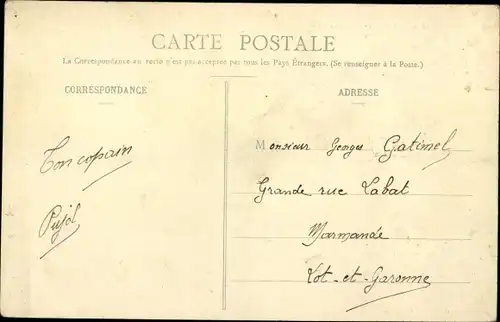 CARTE POSTALE
La Correspondance au recto n'est pas acceptée par tous les Pays Étrangers. (Se renseigner à la Poste.)
CORRESPONDANCE
ADRESSE
Monsieur Georges Gatimel
Grande rue Labat
Marmande
Lot-et-Garonne
Ton copain
Pujol